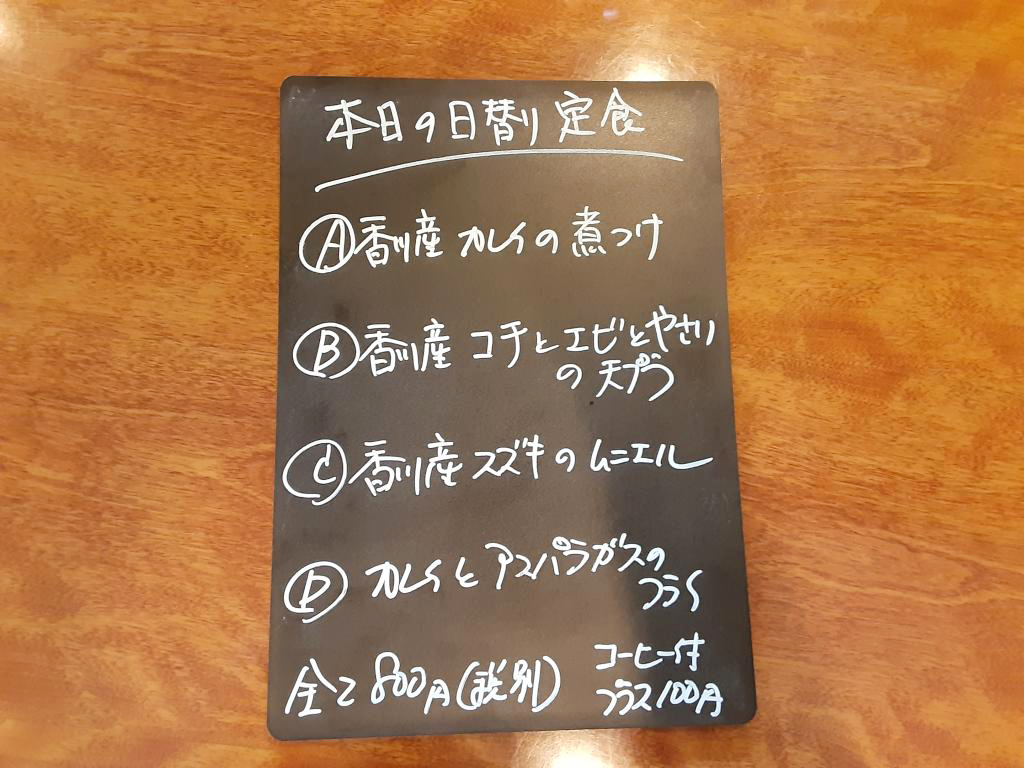 本日の日替り定食
Ⓐ香川産 カレイの煮つけ
Ⓑ香川産 コチとエビとやさい
の天プラ
Ⓒ香川産 スズキのムニエル
Ⓓ カレイとアスパラガスの
フライ
全て800円(税別)
コーヒー付
プラス100円